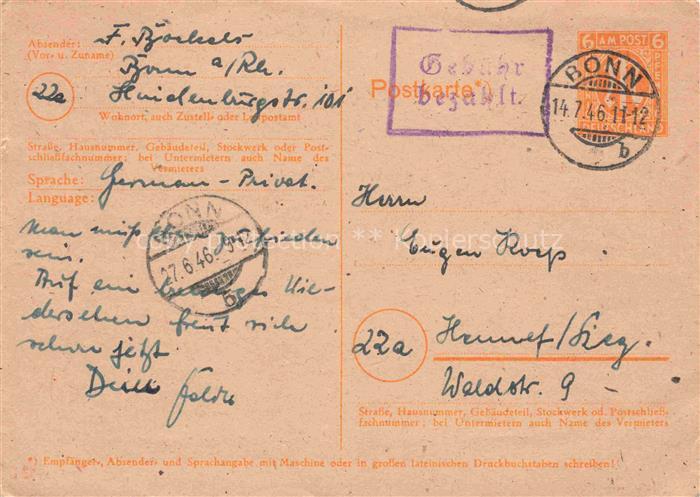 Absender: F. Bockels
(Vor- u. Zuname)
Bonn a/Rh.
22a Hindenburgstr. 101
Wohnort, auch Zustell- oder Leitpostamt
Straße, Hausnummer, Gebäudeteil, Stockwerk oder Post-
schließfachnummer; bei Untermietern auch Name des
Vermieters
Sprache: German - Privat.
Language:
man muß zufrieden
sein.
Auf ein Wie-
dersehen freut sich
schon jetzt
Dein
BONN
27.6.46
b
Gebühr
bezahlt.
Postkarte*)
6 AM POST 6
DEUTSCHLAND
BONN
14.7.46.11-12
b
Herrn
Eugen
22a Hennef/Sieg.
Waldstr. 9 -
Straße, Hausnummer, Gebäudeteil, Stockwerk od. Postschließ-
fachnummer; bei Untermietern auch Name des Vermieters
*) Empfänger-, Absender- und Sprachangabe mit Maschine oder in großen lateinischen Druckbuchstaben schreiben!
copy protection ** Kopierschutz